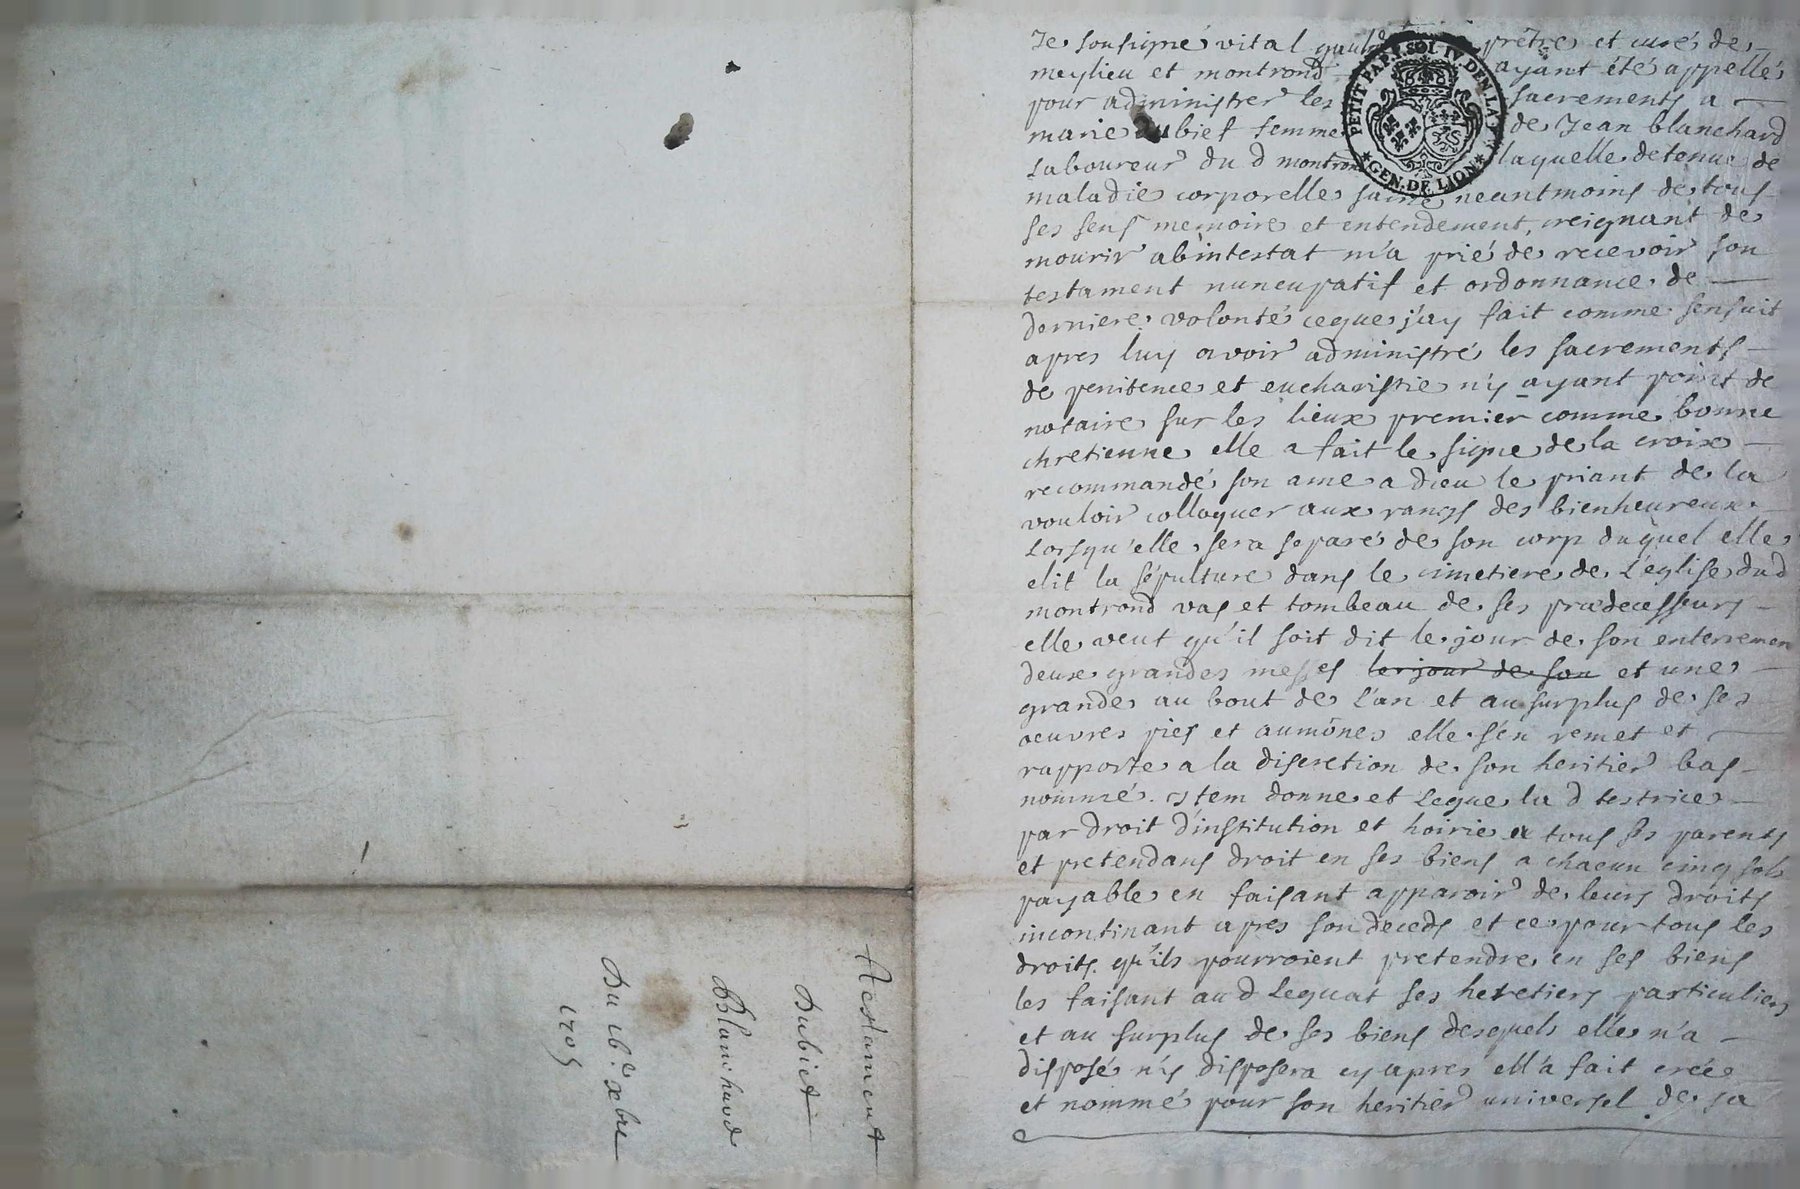 Testament
Dubict
Blanchard
Du 16.e xbre
1705
PETIT PAP. SOL IV. DEN. LA F.
GEN. DE LION
Je sousigné vital prêtre et curé de
meylieu et montrond ayant été appellé
pour administrer les sacrements a
marie dubief femme de Jean blanchard
laboureur du d montrond laquelle detenue de
maladie corporelle saine neantmoins de tous
ses sens memoire et entendement, creignant de
mourir abintestat m'a prié de recevoir son
testament nuncupatif et ordonnance de
derniere volonté ceque j'ay fait comme sensuit
apres luy avoir administré les sacrements
de penitence et eucharistie n'y ayant point de
notaire sur les lieux premier comme bonne
chretienne elle a fait le signe de la croix
recommandé son ame a dieu le priant de la
vouloir colloquer aux rangs des bienheureux
Lorsqu'elle sera separé de son corp duquel elle
elit la sépulture dans le cimetiere de L'eglise dud
montrond vas et tombeau de ses prædecesseurs
elle veut qu'il soit dit le jour de son enterremen
deux grandes messes le jour de son et une
grande au bout de l'an et au surplus de ses
oeuvres pies et aumônes elle s'en remet et
rapporte a la discretion de son heritier bas
nommé. Item donne et Legue la d testrice
par droit d'institution et hoirie a tous ses parents
et pretendans droit en ses biens a chacun cinq sols
payable en faisant apparoir de leurs droits
incontinant apres son deceds et ce pour tous les
droits qu'ils pourroient pretendre en ses biens
les faisant au d Lequat ses heretiers particuliers
et au surplus de ses biens desquels elle n'a
disposé n'y disposera cy apres ell'a fait créé
et nommé pour son heritier universel de sa